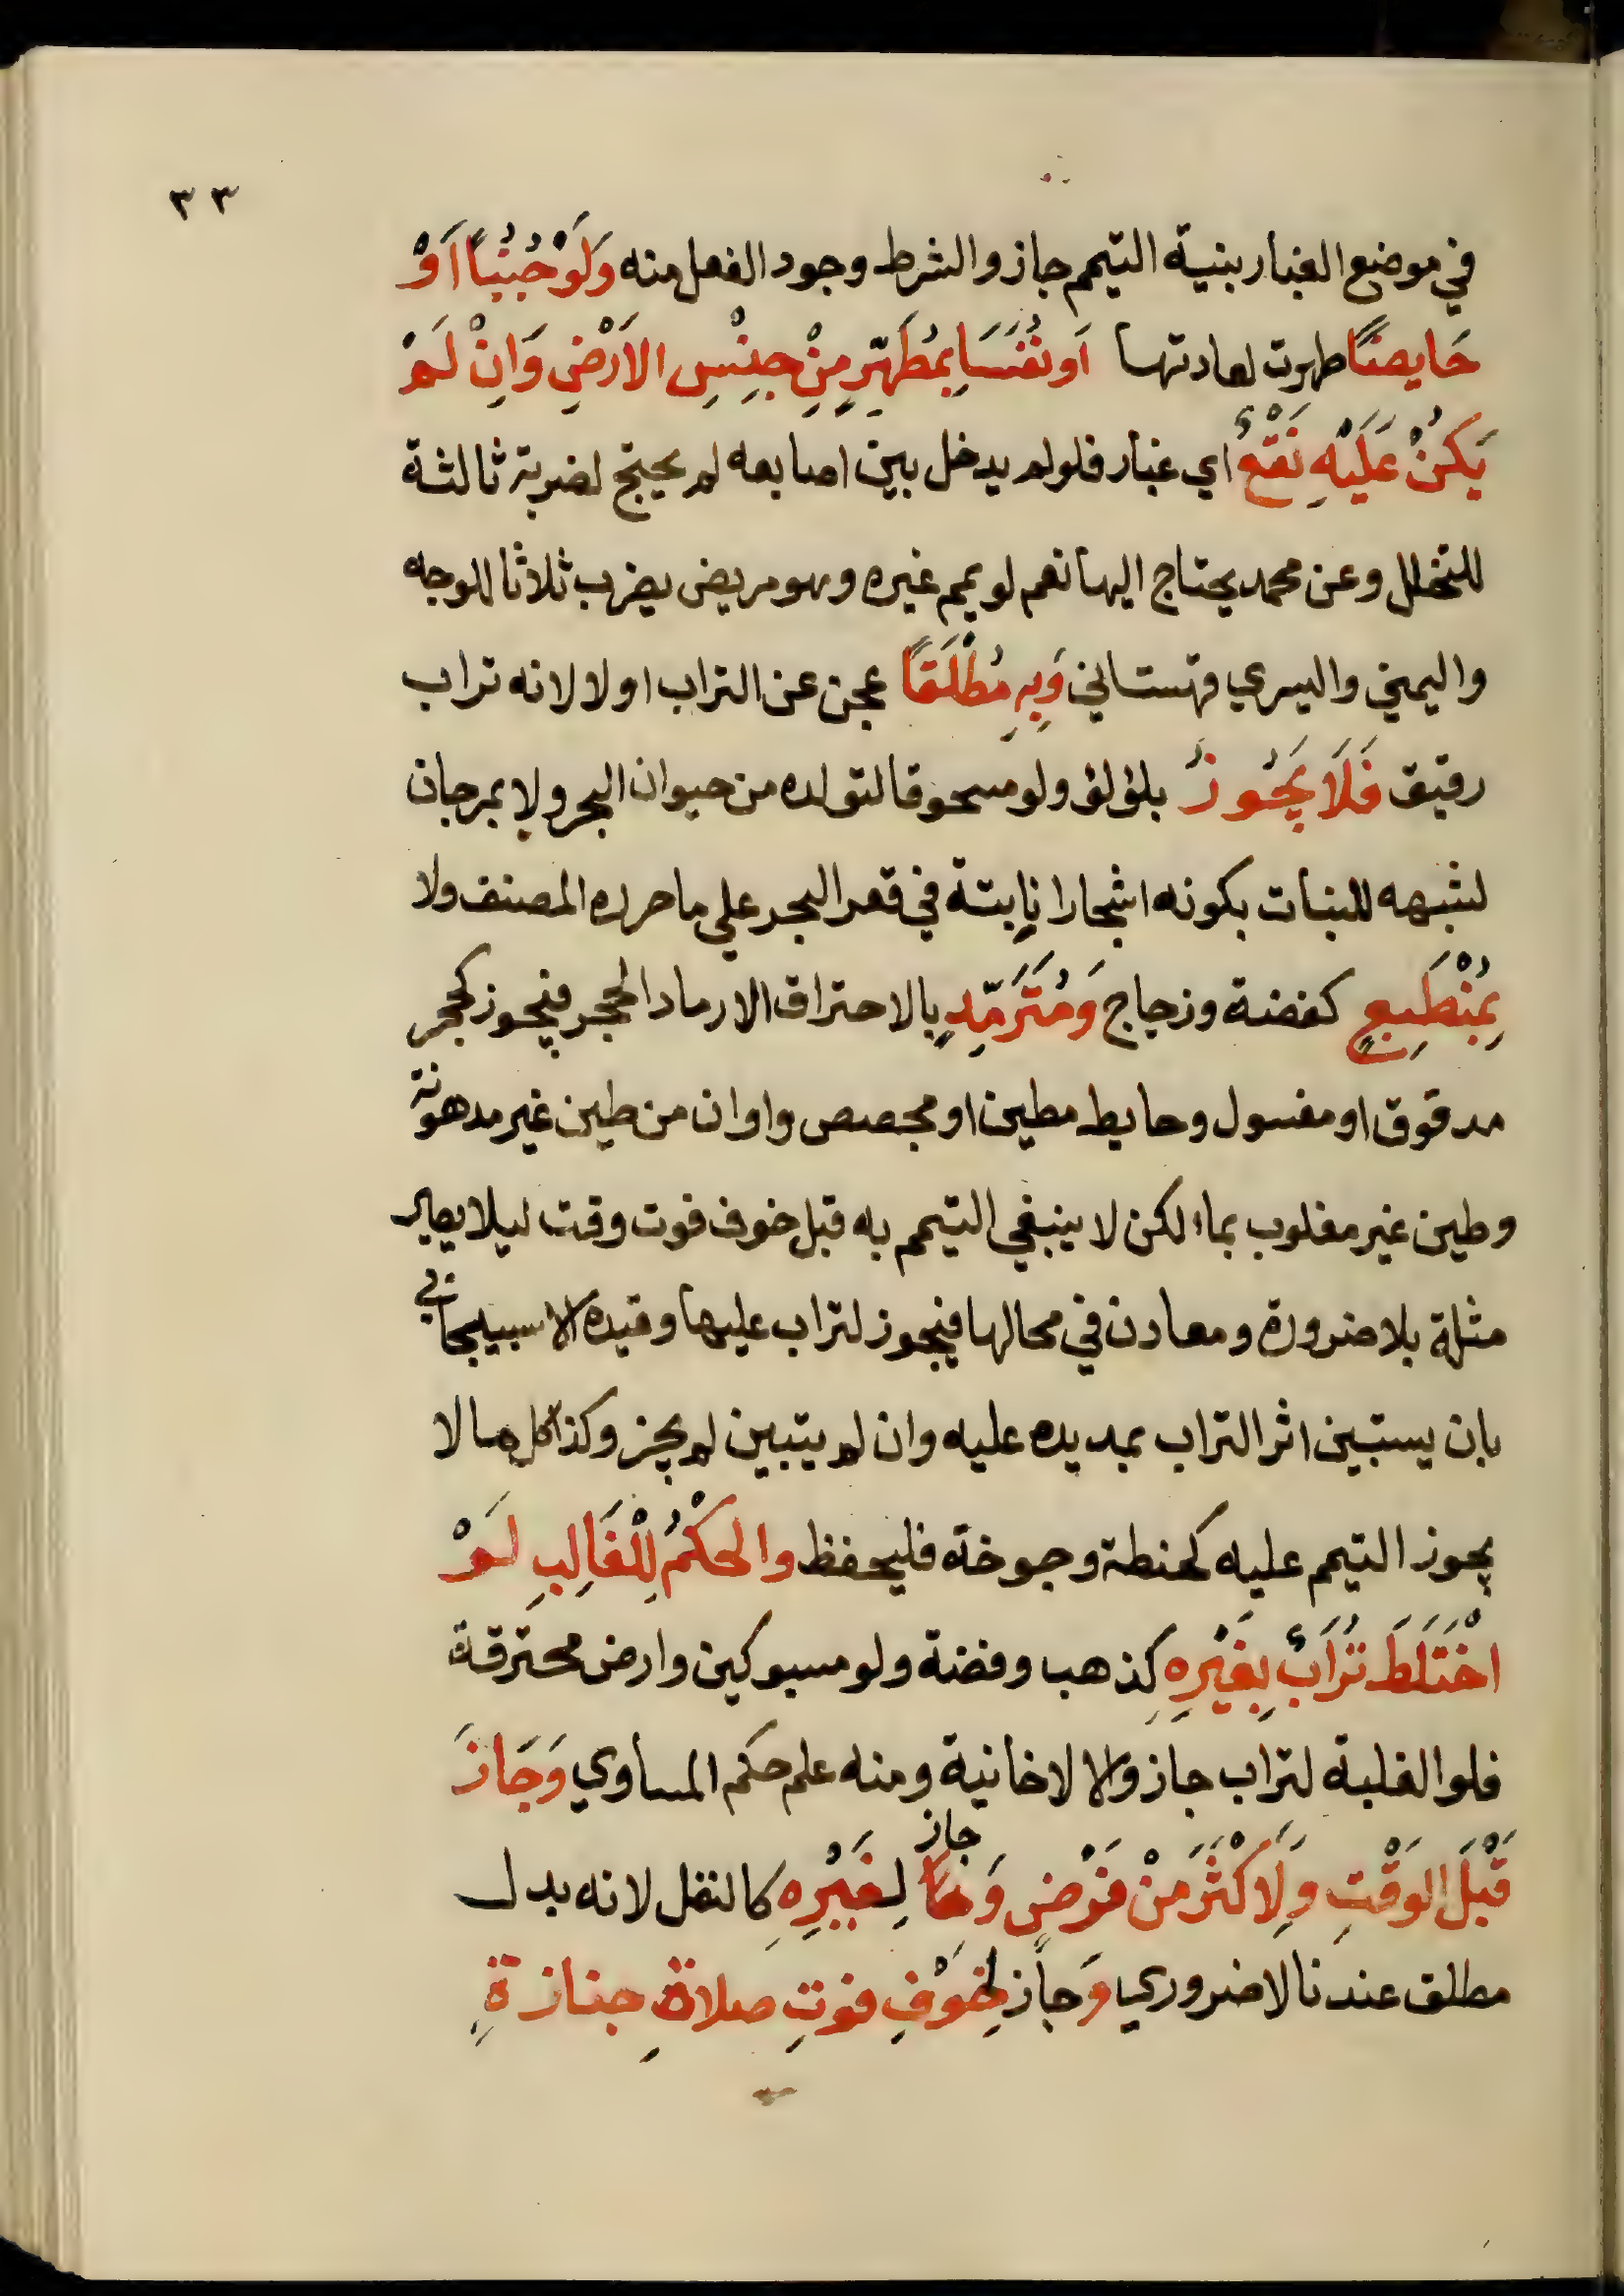 ٣٣
في موضع الغبار بنية التيمم جاز والشرط وجود الفعل منه وَلَوْ جُنُبًا اَوْ
حَايضًا طهرت لعادتها اَو نُفَسَا بِمُطَهِّرٍ مِنْ جِنْسِ الاَرْضِ وَاِنْ لَمْ
يَكُنْ عَلَيْهِ نَقْعٌ اي غبار فلو لم يدخل بين اصابعه لم يحتج لضربة ثالثة
للتخلل وعن محمد يحتاج اليها نعم لو يمم غيره وهو مريض يضرب ثلاثا للوجه
واليمني واليسري قهستاني وَبِهِ مُطْلَقًا عجز عن التراب اولا لانه تراب
رقيق فَلَا يَجُوزُ بلؤلؤ ولو مسحوقا لتولده من حيوان البحر ولا بمرجان
لشبهه للنبات بكونه اشجارا نابتة في قعر البحر علي ما حرره المصنف ولا
بِمُنْطَبِعٍ كفضة وزجاج وَمُتَرَمِّدٍ بالاحتراق الا رماد الحجر فيجوز كحجر
مدقوق او مغسول وحايط مطين او مجصص واوان من طين غير مدهونة
وطين غير مغلوب بماء لكن لا ينبغي التيمم به قبل خوف فوت وقت ليلا يصير
مثلة بلا ضرورة ومعادن في محالها فيجوز لتراب عليها وقيده الاسبيجاني
بان يستبين اثر التراب بمد يده عليه وان لم يتبين لم يجز وكذا كل ما لا
يجوز التيمم عليه كحنطة وجوخة فليحفظ والحكْمُ لِلْغَالِبِ لَوْ
اخْتَلَطَ تُرَابٌ بِغَيْرِهِ كذهب وفضة ولو مسبوكين وارض محترقة
فلو الغلبة لتراب جاز والا لا خانية ومنه علم حكم المساوي وَجَازَ
قَبْلَ الوَقْتِ وَلِاَكْثَرَ مِنْ فَرْضٍ وَ جاز لِغَيْرِهِ كالنفل لانه بدل
مطلق عندنا لا ضروري وَجاز لِخَوْفِ فوتِ صلاةِ جنازةٍ